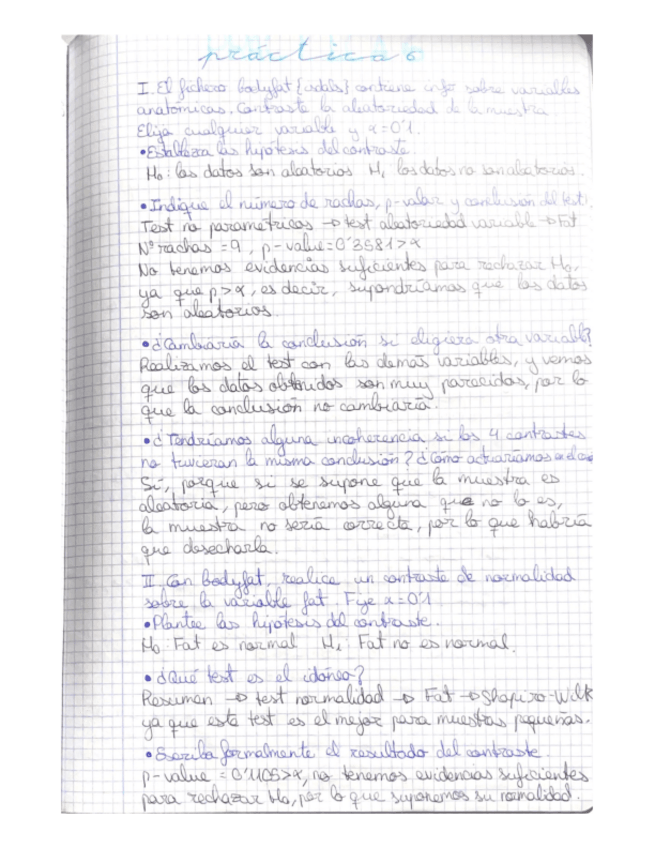 práctica 6
I. El fichero bodyfat {adds} contiene info sobre variables
anatómicas. Contraste la aleatoriedad de la muestra
Elija cualquier variable y α=0'1.
• Establezca las hipótesis del contraste.
H₀: los datos son aleatorios H₁ los datos no son aleatorios.
• Indique el número de rachas, p-valor y conclusión del test.
Test no paramétricos → test aleatoriedad variable → Fat
Nº rachas = 9, p-value=0'3581>α
No tenemos evidencias suficientes para rechazar H₀,
ya que p>α, es decir, supondríamos que los datos
son aleatorios.
• ¿Cambiaría la conclusión si eligiera otra variable?
Realizamos el test con las demás variables, y vemos
que los datos obtenidos son muy parecidos, por lo
que la conclusión no cambiaría.
• ¿Tendríamos alguna incoherencia si los 4 contrastes
no tuvieran la misma conclusión? ¿Cómo actuaríamos
Sí, porque si se supone que la muestra es
aleatoria, pero obtenemos alguna que no lo es,
la muestra no sería correcta, por lo que habría
que desecharla.
II. Con bodyfat, realice un contraste de normalidad
sobre la variable fat. Fije α=0'1
• Plantee las hipótesis del contraste.
H₀: Fat es normal H₁: Fat no es normal.
• ¿Qué test es el idóneo?
Resumen → test normalidad → Fat → Shapiro-Wilk
ya que este test es el mejor para muestras pequeñas.
• Escriba formalmente el resultado del contraste.
p-value = 0'1105>α, no tenemos evidencias suficientes
para rechazar H₀, por lo que suponemos su normalidad.